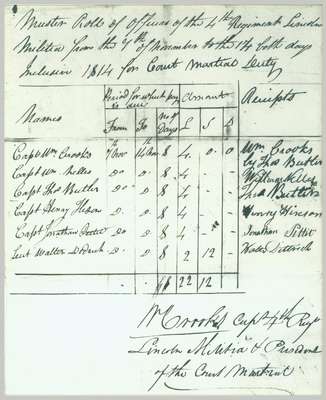 Muster Roll of Officers of the 4th Regiment Lincoln
Militia from the 7th of November to the 14 both days
Inclusive 1814 for Court Martial Duty
Names Period for which pay is due No of Days Amount Receipts
From To £ S D
Capt Wm Crooks 7th Nov 14th Nov 8 4 0 0 Wm Crooks
Capt Wm Nelles Do Do 8 4 by Thos Butler
Capt Thos Butler Do Do 8 4 Thos Butler
Capt Henry Hixson Do Do 8 4 - - Henry Hixson
Capt Jonathan Do Do 8 4 - - Jonathan
Lieut Walter Dittrick Do Do 8 2 12 - Walter Dittrick
48 22 12 -
Wm Crooks Capt 4th Regt
Lincoln Militia & President
of the Court Martial